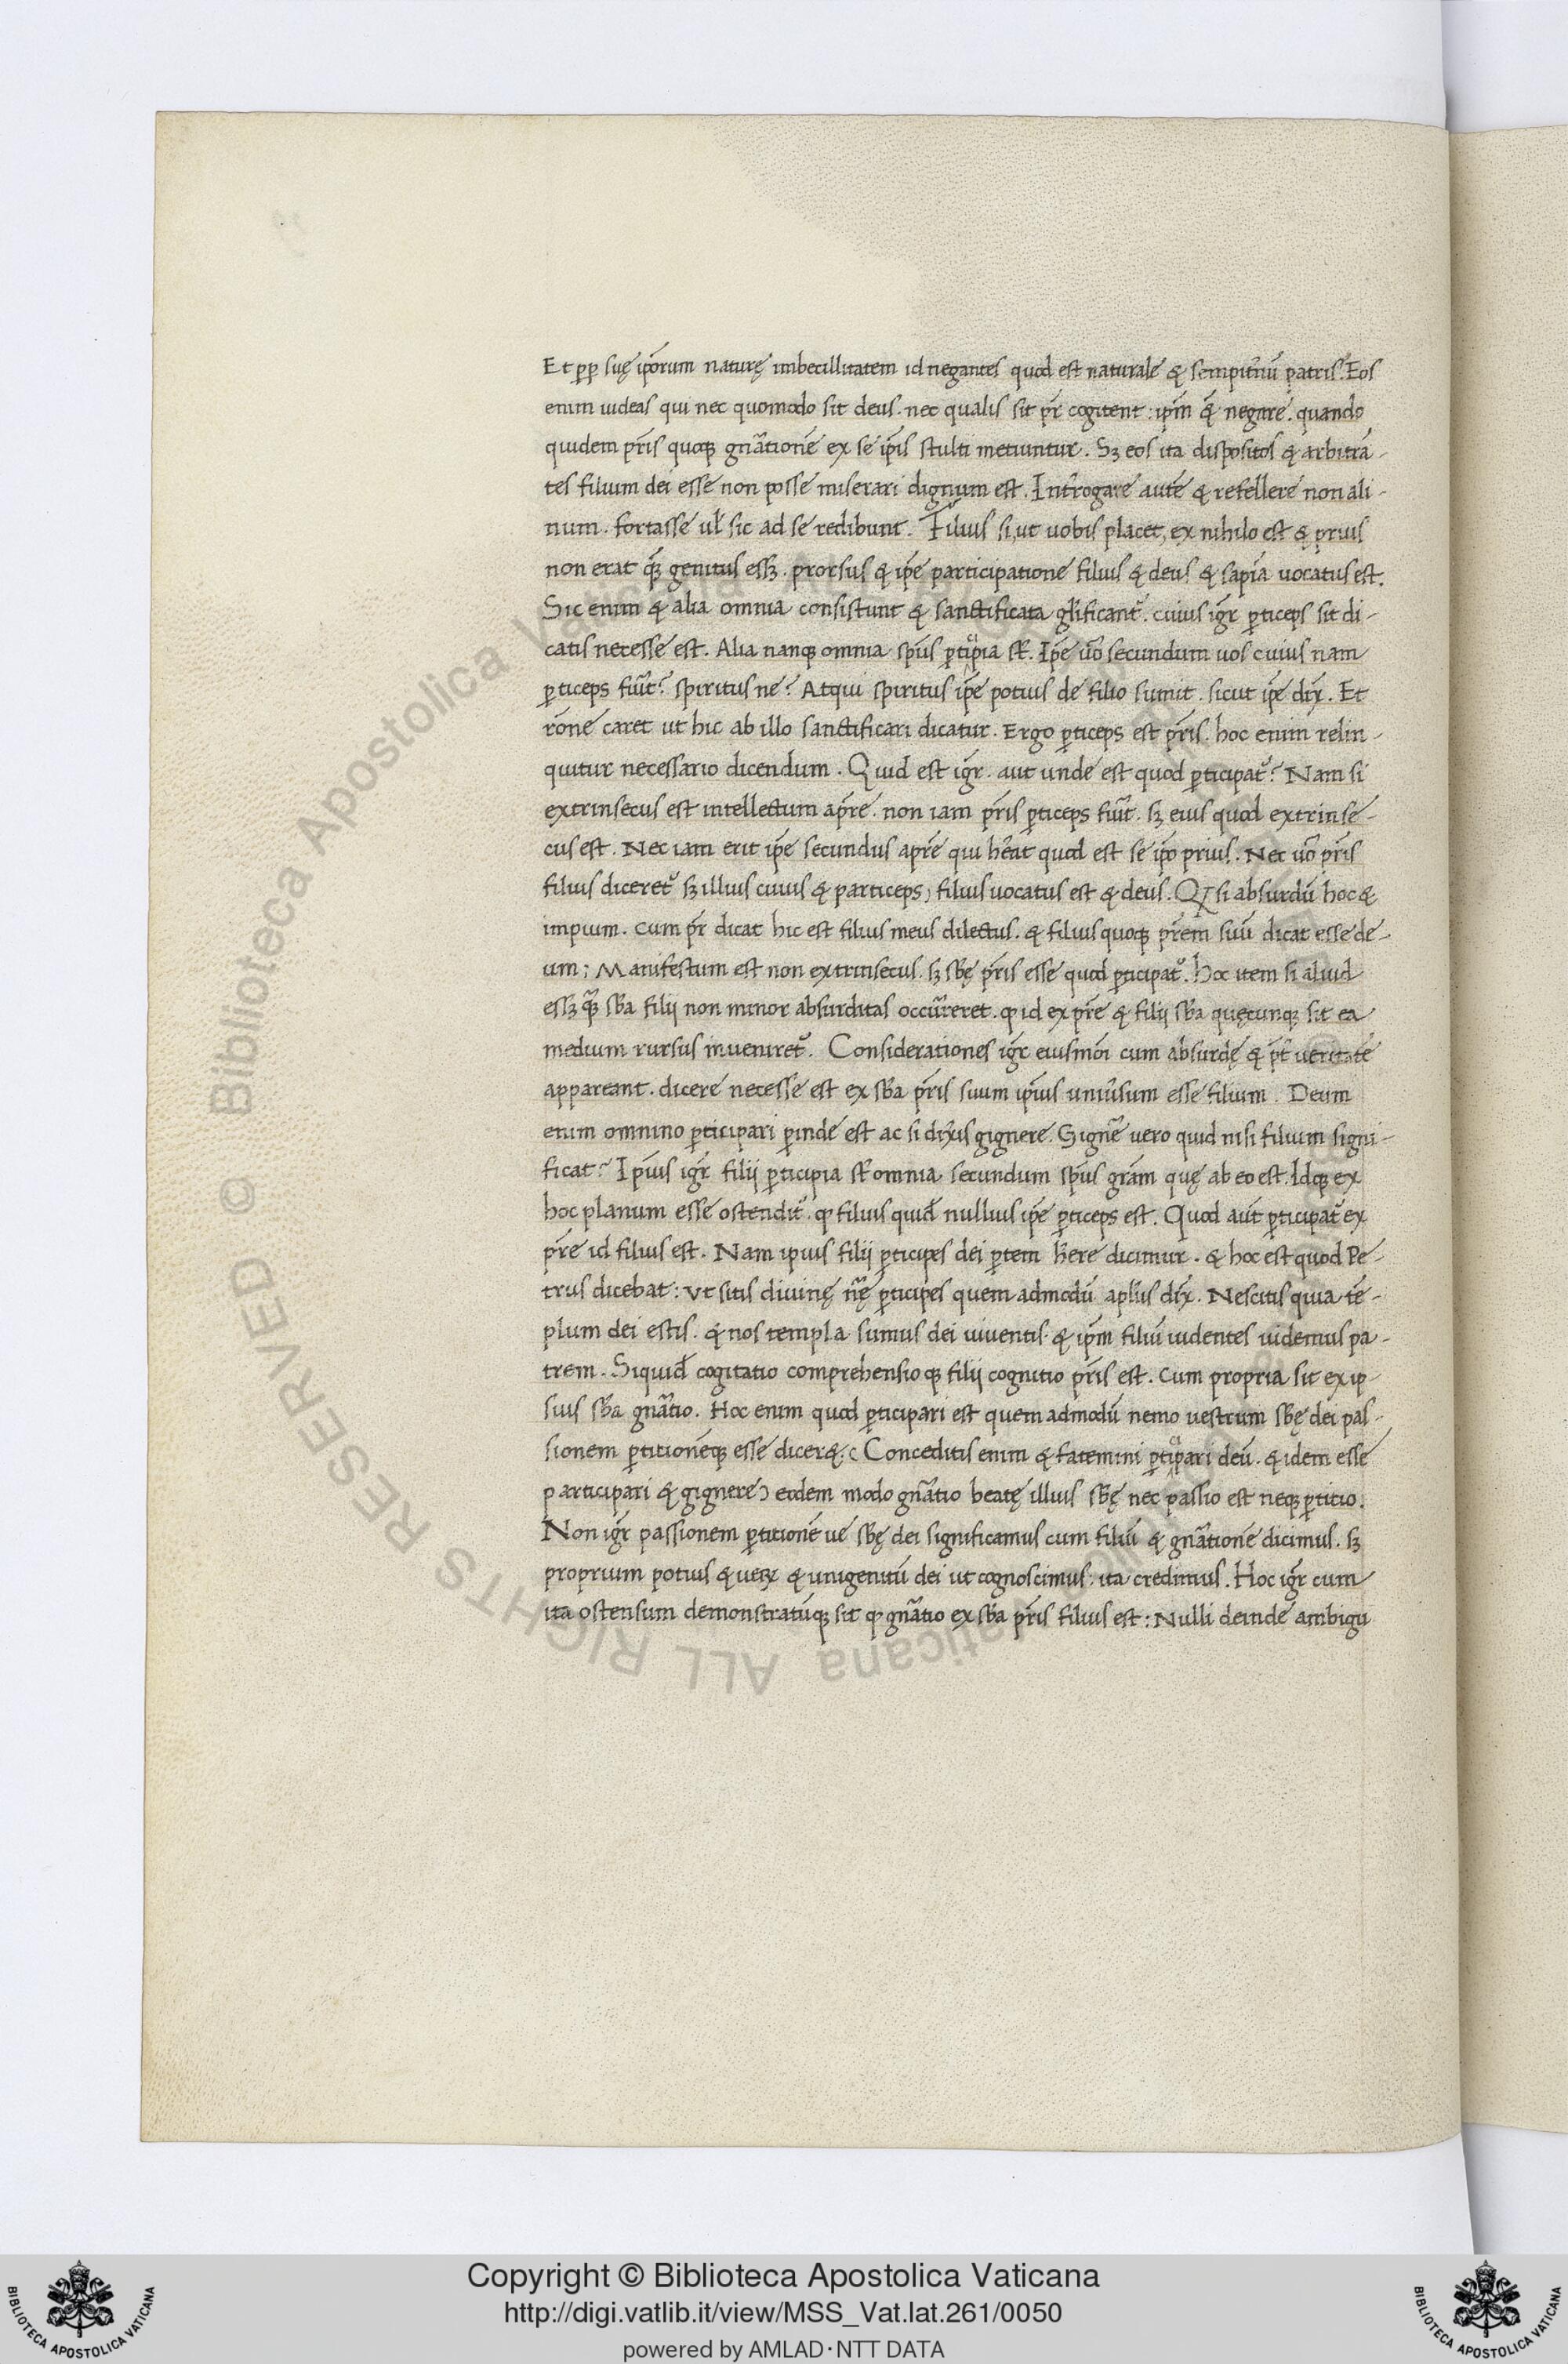 Et ꝓp suę ip̃orum naturę imbecillitatem id negantes quod est naturale & sempit̃nũ patris. Eos
enim uideas qui nec quomodo sit deus. nec qualis sit pr̃ cogitent: ip̃m negare. quando
quidem pr̃is quoqꝫ gñationẽ ex se ip̃is stulti metiuntur. Sꝫ eos ita dispositos & arbitrã-
tes filium dei esse non posse miserari dignum est. Int̃rogare autẽ & refellere non ali-
num. fortasse ul̃ sic ad se redibunt. Filius si, ut uobis placet, ex nihilo est & prius
non erat q̃ꝫ genitus essꝫ. prorsus & ip̃e participatione filius & deus & sapĩa uocatus est.
Sic enim & alia omnia consistunt & sanctificata gl̃ificant᷑. cuius igr̃ ꝑticeps sit di-
catis necesse est. Alia nanqꝫ omnia sp̃us ꝑticipia st̃. Ip̃e ũo secundum uos cuius nam
ꝑticeps fuĩt? spiritus ne? Atqui spiritus ip̃e potius de filio sumit. sicut ip̃e dix̃. Et
rõne caret ut hic ab illo sanctificari dicatur. Ergo ꝑticeps est pr̃is. hoc enim relin-
quitur necessario dicendum. Quid est igr̃. aut unde est quod ꝑticipat᷑? Nam si
extrinsecus est intellectum a pr̃e. non iam pr̃is ꝑticeps fuĩt. sꝫ eius quod extrinse-
cus est. Nec iam erit ip̃e secundus a pr̃e qui hẽat quod est se ip̃o prius. Nec ũo pr̃is
filius diceret᷑ sꝫ illius cuius & particeps, filius uocatus est & deus. Qꝫ si absurdũ hoc &
impium. cum pr̃ dicat hic est filius meus dilectus. & filius quoqꝫ pr̃em suũ dicat esse de-
um; Manifestum est non extrinsecus. sꝫ sb̃ę pr̃is esse quod ꝑticipat᷑. hoc item si aliud
essꝫ q̃ꝫ sb̃a filij non minor absurditas occũrreret. ꝙ id ex pr̃e & filij sb̃a quęcunqꝫ sit ea
medium rursus inueniret᷑. Considerationes igr̃ eiusmõi cum absurdę & pt̃ ueritatẽ
appareant. dicere necesse est ex sb̃a pr̃is suum ip̃ius uniũsum esse filium. Deum
enim omnino ꝑticipari ꝑinde est ac si dix̃is gignere. Gigñe uero quid nisi filium signi-
ficat? Ip̃ius igr̃ filij ꝑticipia st̃ omnia secundum sp̃us gr̃am quę ab eo est. Idqꝫ ex
hoc planum esse ostendit᷑. ꝙ filius quid̃ nullius ip̃e ꝑticeps est. Quod aũt ꝑticipat᷑ ex
pr̃e id filius est. Nam ipius filij ꝑticipes dei ꝑtem h̃ere dicimur. & hoc est quod Pe-
trus dicebat: ut sitis diuinę nr̃ę ꝑticipes quem admodũ apl̃us dix̃. Nescitis quia tẽ-
plum dei estis. & nos templa sumus dei uiuentis. & ip̃m filiũ uidentes uidemus pa-
trem. Siquid̃ cogitatio comprehensioqꝫ filij cognitio pr̃is est. cum propria sit ex ip-
sius sb̃a gñatio. Hoc enim quod ꝑticipari est quem admodũ nemo uestrum sb̃ę dei pas-
sionem ꝑtitionẽqꝫ esse dicere. (Conceditis enim & fatemini ꝑticipari deũ. & idem esse
participari & gignere) eodem modo gñatio beatę illius sb̃ę nec passio est neqꝫ ꝑtitio.
Non igr̃ passionem ꝑtitionẽ ue sb̃ę dei significamus cum filiũ & gñationẽ dicimus. sꝫ
proprium potius & uerꝫ & unigenitũ dei ut cognoscimus: ita credimus. Hoc igr̃ cum
ita ostensum demonstratũqꝫ sit ꝙ gñatio ex sb̃a pr̃is filius est: Nulli deinde ambigu
Copyright © Biblioteca Apostolica Vaticana
http://digi.vatlib.it/view/MSS_Vat.lat.261/0050
powered by AMLAD·NTT DATA
BIBLIOTECA APOSTOLICA VATICANA
BIBLIOTECA APOSTOLICA VATICANA
© Biblioteca Apostolica Vaticana ALL RIGHTS RESERVED